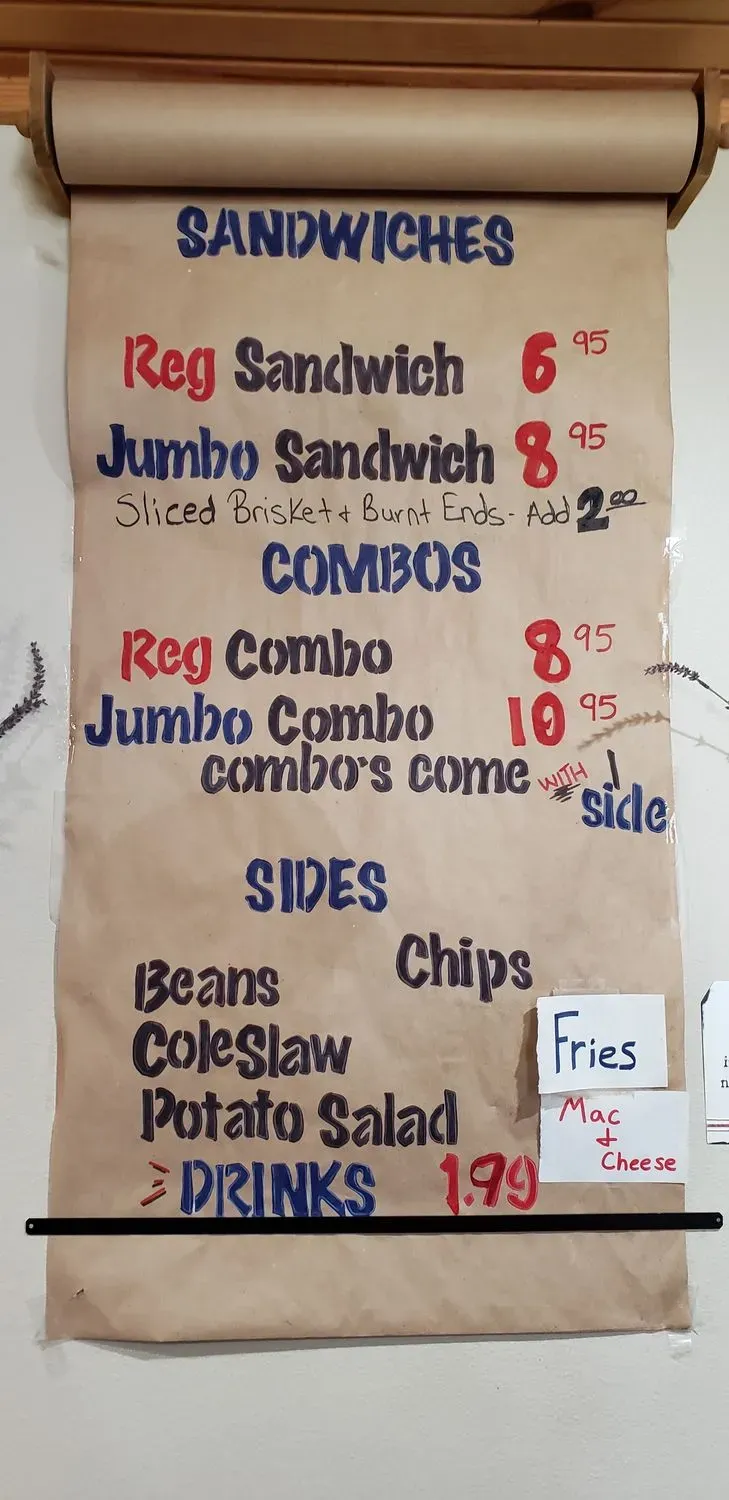 SANDWICHES
Reg Sandwich 6 95
Jumbo Sandwich 8 95
Sliced Brisket & Burnt Ends - Add 2 00
COMBOS
Reg Combo 8 95
Jumbo Combo 10 95
combo's come WITH 1
side
SIDES
Chips
Beans
Coleslaw
Potato Salad
Fries
Mac
&
Cheese
DRINKS 1.99